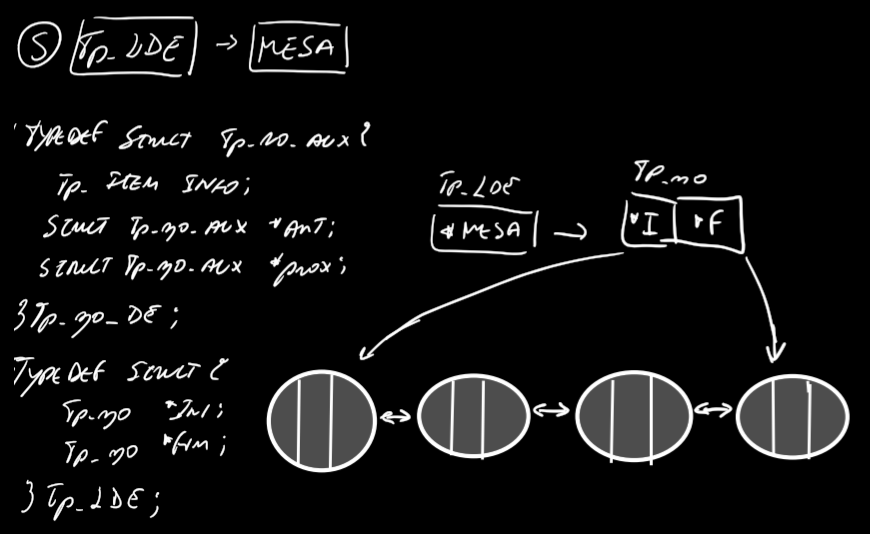 S Tp_LDE → MESA
TYPEDEF STRUCT Tp_no_AUX {
Tp_ITEM INFO;
STRUCT Tp_no_AUX *ANT;
STRUCT Tp_no_AUX *prox;
} Tp_no_DE;
TYPEDEF STRUCT {
Tp_no *INI;
Tp_no *FIM;
} Tp_LDE;
Tp_LDE
*MESA →
Tp_no
*I *F